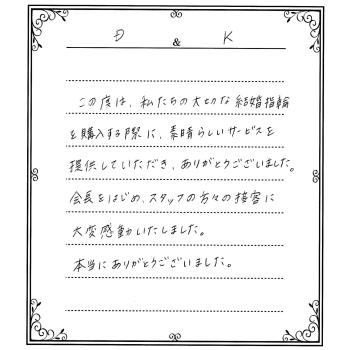 D & K
この度は、私たちの大切な結婚指輪
を購入する際に、素晴らしいサービスを
提供していただき、ありがとうございました。
会長をはじめ、スタッフの方々の接客に
大変感動いたしました。
本当にありがとうございました。